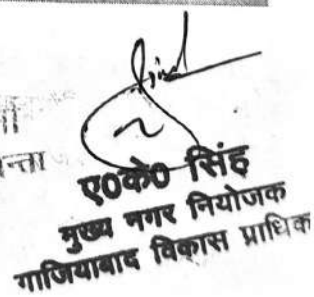 ए०के० सिंह
मुख्य नगर नियोजक
गाजियाबाद विकास प्राधिक